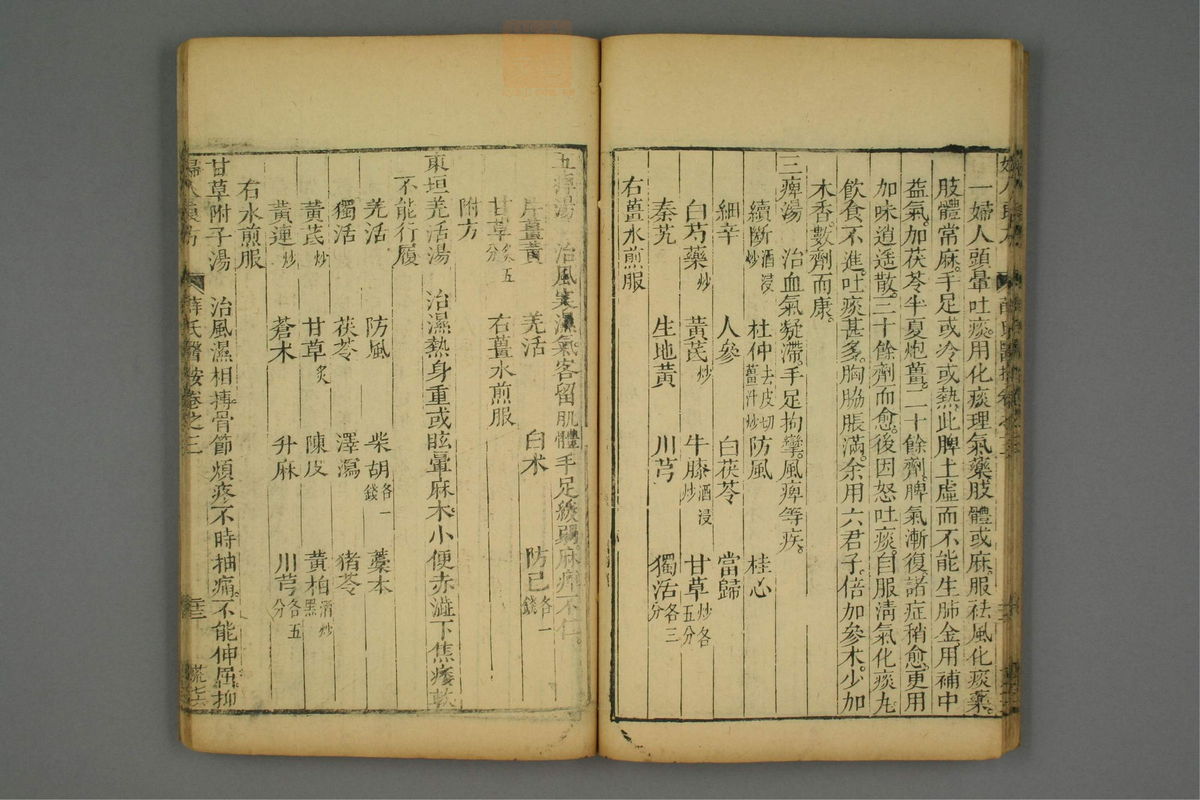 一婦人頭暈吐痰用化痰理氣藥肢體或麻服祛風化痰藥
肢體常麻手足或冷或熱此脾土虛而不能生肺金用補中
益氣加茯苓半夏炮薑二十餘劑脾氣漸復諸症稍愈更用
加味逍遙散三十餘劑而愈後因怒吐痰自服清氣化痰丸
飲食不進吐痰甚多胸脇脹滿余用六君子倍加參朮少加
木香數劑而康
三痺湯　治血氣凝滯手足拘攣風痺等疾
續斷酒浸炒　杜仲去皮切薑汁炒　防風　桂心
細辛　人參　白茯苓　當歸
白芍藥炒　黃芪炒　牛膝酒浸炒　甘草炒各五分
秦艽　生地黃　川芎　獨活各三分
右薑水煎服
五痺湯　治風寒濕氣客留肌體手足緩弱麻痺不仁
片薑黃　羌活　白朮　防已各一錢
甘草炙五分　右薑水煎服
附方
東垣羌活湯　治濕熱身重或眩暈麻木小便赤澁下焦痿軟
不能行履
羌活　防風　柴胡各一錢　藁本
獨活　茯苓　澤瀉　猪苓
黃芪炒　甘草炙　陳皮　黃柏酒炒黑
黃連炒　蒼朮　升麻　川芎各五分
右水煎服
甘草附子湯　治風濕相摶骨節煩疼不時抽痛不能伸屈抑
婦人良方　薛氏醫按卷之三